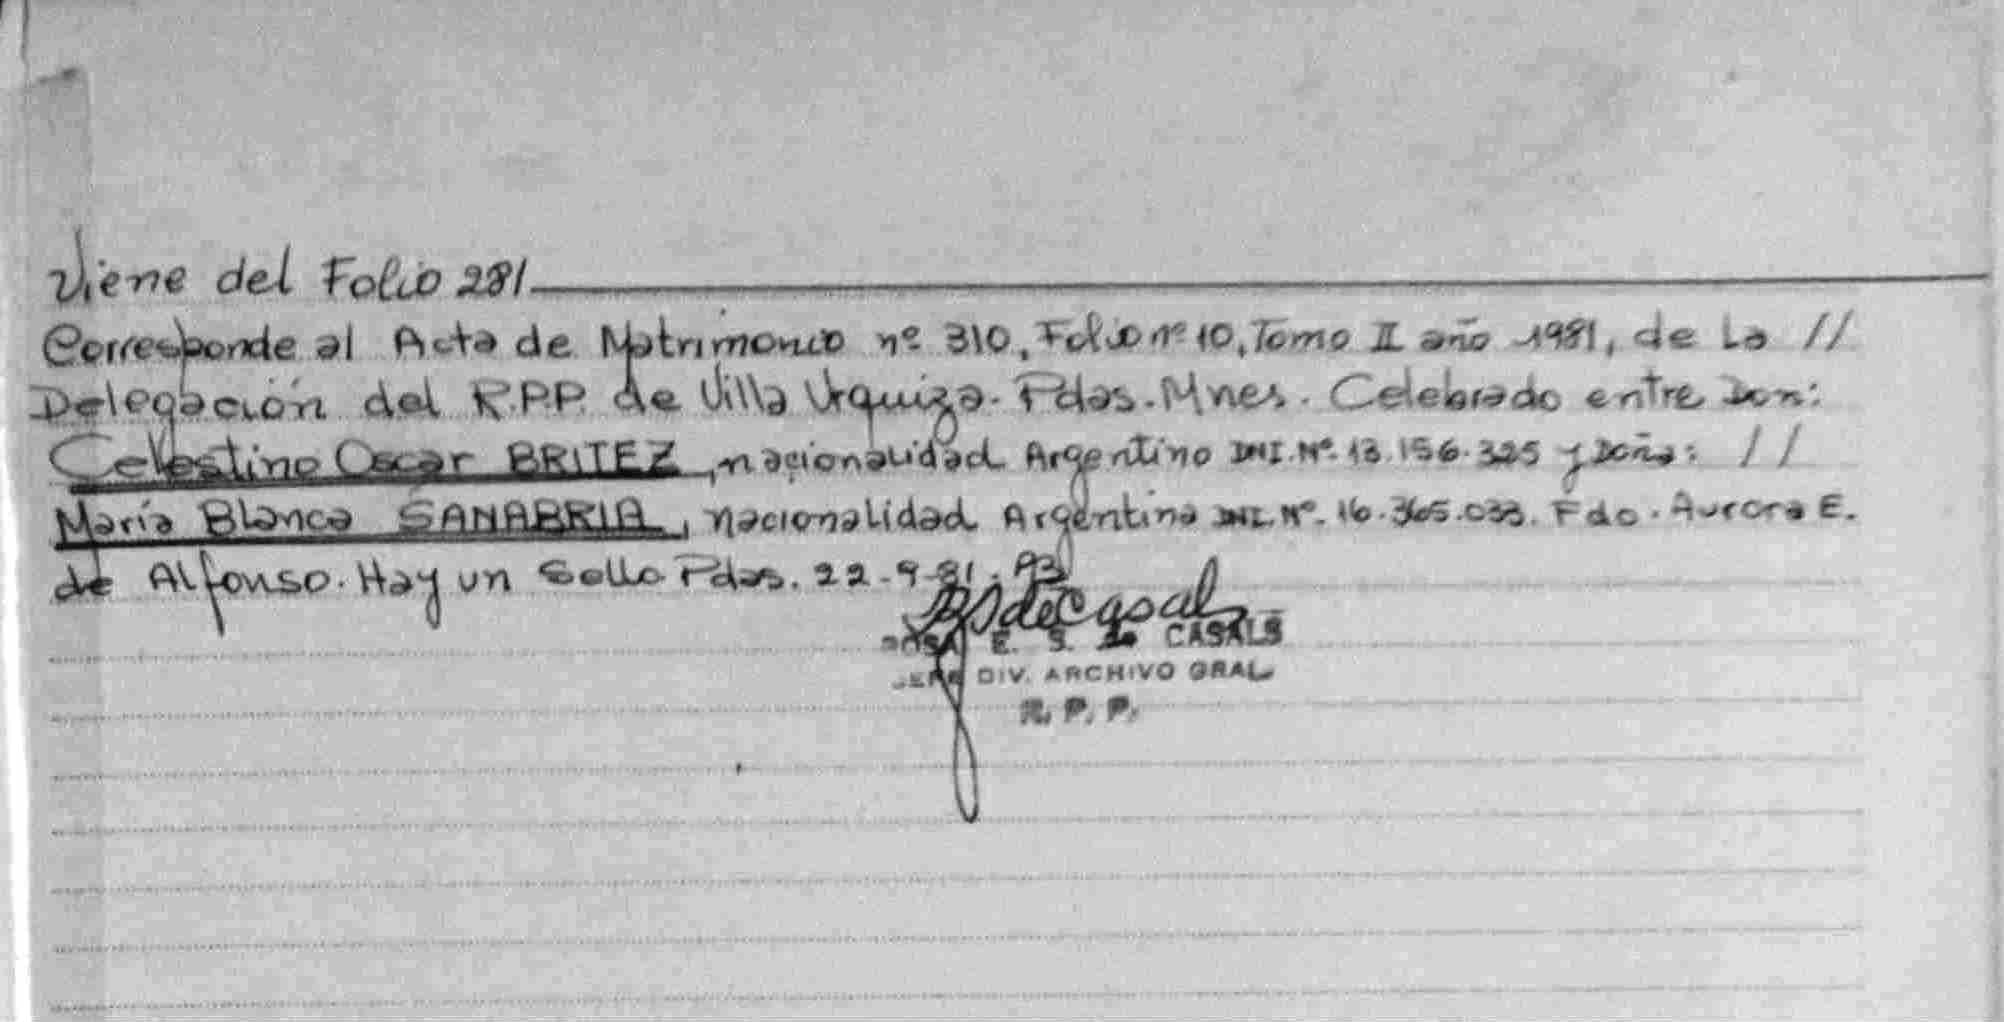 Viene del Folio 281
Corresponde al Acta de Matrimonio nº 310, Folio nº 10, Tomo II año 1981, de La //
Delegación del R.P.P. de Villa Urquiza. Pdas. Mnes. Celebrado entre Don:
Celestino Oscar BRITEZ, nacionalidad Argentino DNI. Nº. 13.156.325 y Doña: //
María Blanca SANABRIA, nacionalidad Argentina DNI. Nº. 16.365.033. Fdo. Aurora E.
de Alfonso. Hay un Sello Pdas. 22-9-81.
de Casals
ROSA E. S. de CASALS
JEFE DIV. ARCHIVO GRAL
R. P. P.